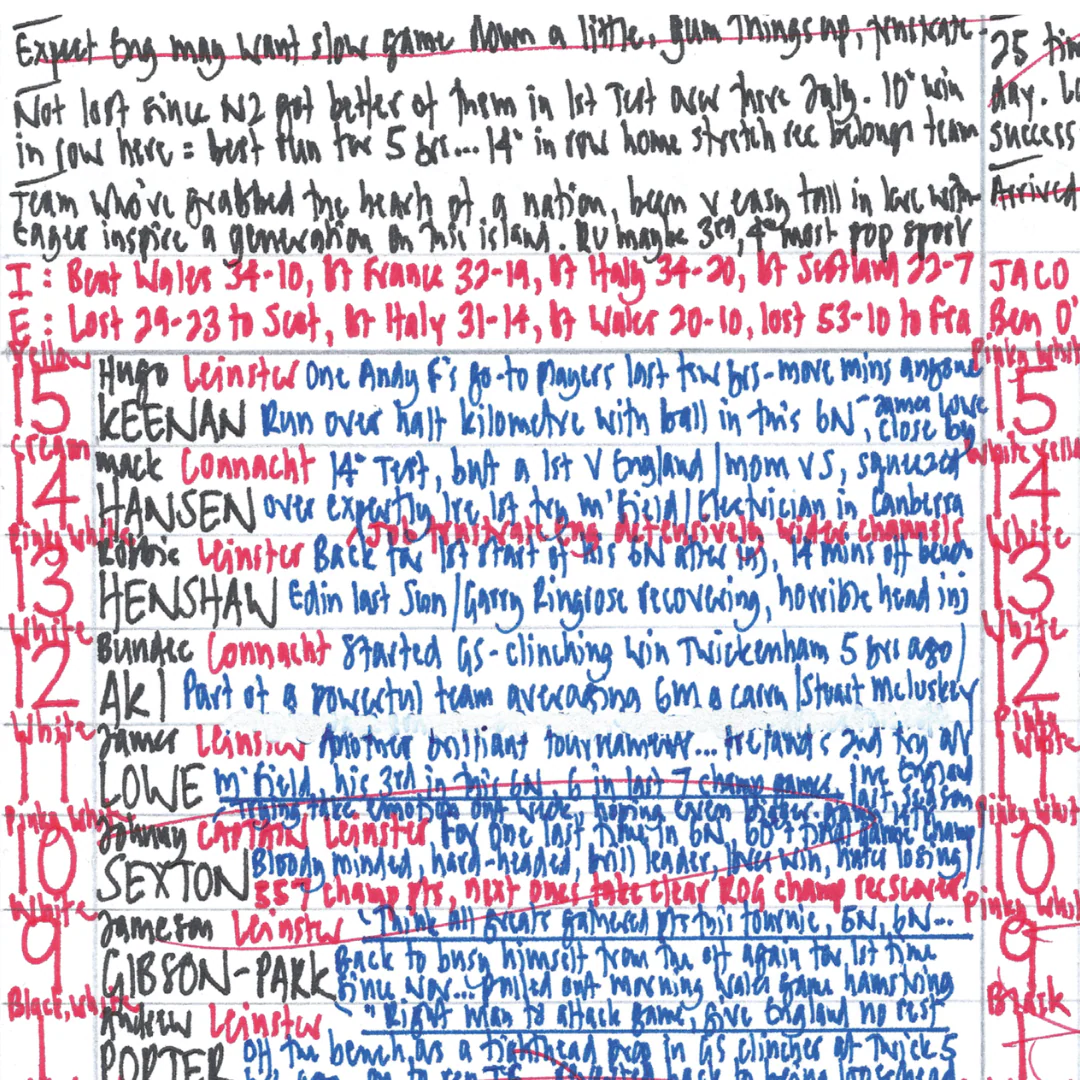 Expect Eng may want slow game down a little, gum things up, frustrate -
25
Not lost since NZ got better of them in 1st Test over there July. 10th win
day.
in row here = best run for 5 yrs... 14th in row home stretch rec belongs team
success
Team who've grabbed the hearts of a nation, been v easy fall in love with
Arrived
Eager inspire a generation on this island. RU maybe 3rd, 4th most pop sport
I : Beat Wales 34-10, bt France 32-19, bt Italy 34-20, bt Scotland 22-7
JACO
E : Lost 29-23 to Scot, bt Italy 31-14, bt Wales 20-10, lost 53-10 to Fra
Ben O'
Yellow
Pinky Whit
15 Hugo Leinster One Andy F's go-to players last few yrs - more mins anyone
15
KEENAN Run over half kilometre with ball in this 6N, James Lowe close by
Cream
White Yello
14 Mack Connacht 14th Test, but a 1st V England / mom v S, squeezed
14
HANSEN over expertly Ire 1st try m'field / Electrician in Canberra
Pinky White
White
Job frustrate Eng defensively wider channels
13 Robbie Leinster Back for 1st start of his 6N after inj, 14 mins off bench
13
HENSHAW Edin last Sun / Garry Ringrose recovering, horrible head inj
White
White
12 Bundee Connacht Started GS-clinching win Twickenham 5 yrs ago /
12
AKI Part of a powerful team averaging 6m a carry / Stuart McCluskey
White
Pinky White
11 James Leinster Another brilliant tournament... Ireland's 2nd try
11
LOWE m'field, his 3rd in this 6N, 6 in last 7 champ games. Inc England last season
Pinky White
Pinky Whit
10 Johnny CAPTAIN Leinster For one last time in 6N. 60th + final game champ
10
SEXTON Bloody minded, hard-headed, leader, loves win, hates losing
557 champ pts, next ones take clear ROG champ rec scorer
White
Pinky Whit
9 Jameson Leinster "Think all greats gathered pts this tournie, 5N, 6N...
9
GIBSON-PARK Back to busy himself from the off again for 1st time
since Nov... Pulled out morning Wales game hamstring
Black, White
Black
1 Andrew Leinster "Right man to attack game, give England no rest
1
PORTER Off the bench as a tighthead prop in GS clincher at Twick 5